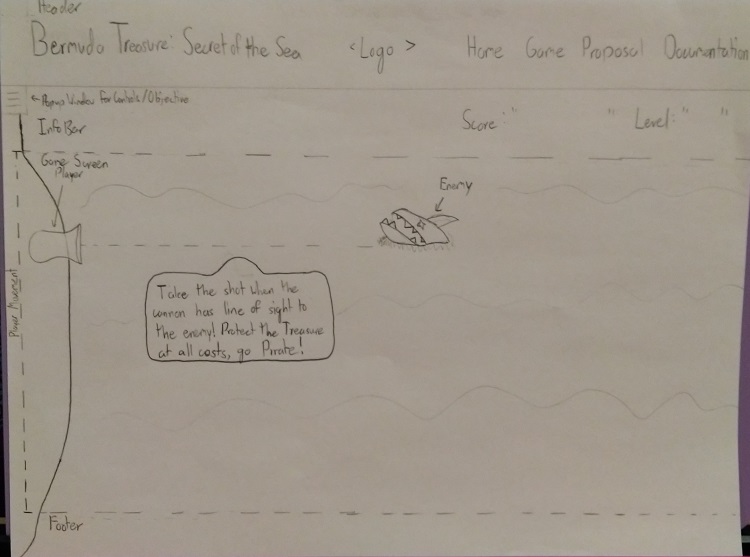 Header
Bermuda Treasure: Secret of the Sea <Logo> Home Game Proposal Documentation
← Popup Window for Controls/Objective
Info Bar Score: " " Level: " "
Game Screen
Player
Enemy
Player Movement
Take the shot when the
cannon has line of sight to
the enemy! Protect the Treasure
at all costs, go Pirate!
Footer